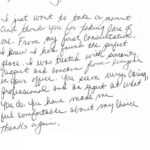 I just want to take a minute
and thank you for taking care of
me. From my first consultation
I knew I had found the perfect
place. I was treated with sincerity,
respect and concern from everyone
in your office. You are very caring,
professional and an expert at what
you do. You have made me
feel comfortable about my choice
Thanks again.